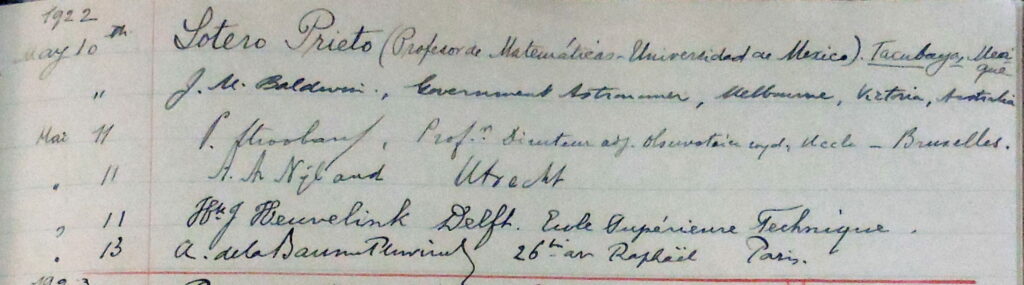 1922
May 10th Sotero Prieto (Profesor de Matemáticas - Universidad de Mexico). Tacubaya, Mexique
" J. M. Baldwin., Government Astronomer, Melbourne, Victoria, Australia
Mai 11 P. Stroobant, Profr. Directeur adj. Observatoire royal, Uccle - Bruxelles.
" 11 A. A. Nijland Utrecht
" 11 Hk J Heuvelink Delft. Ecole Supérieure Technique.
" 13 A. de la Baume Pluvinel 26 bis av Raphaël Paris.
1923